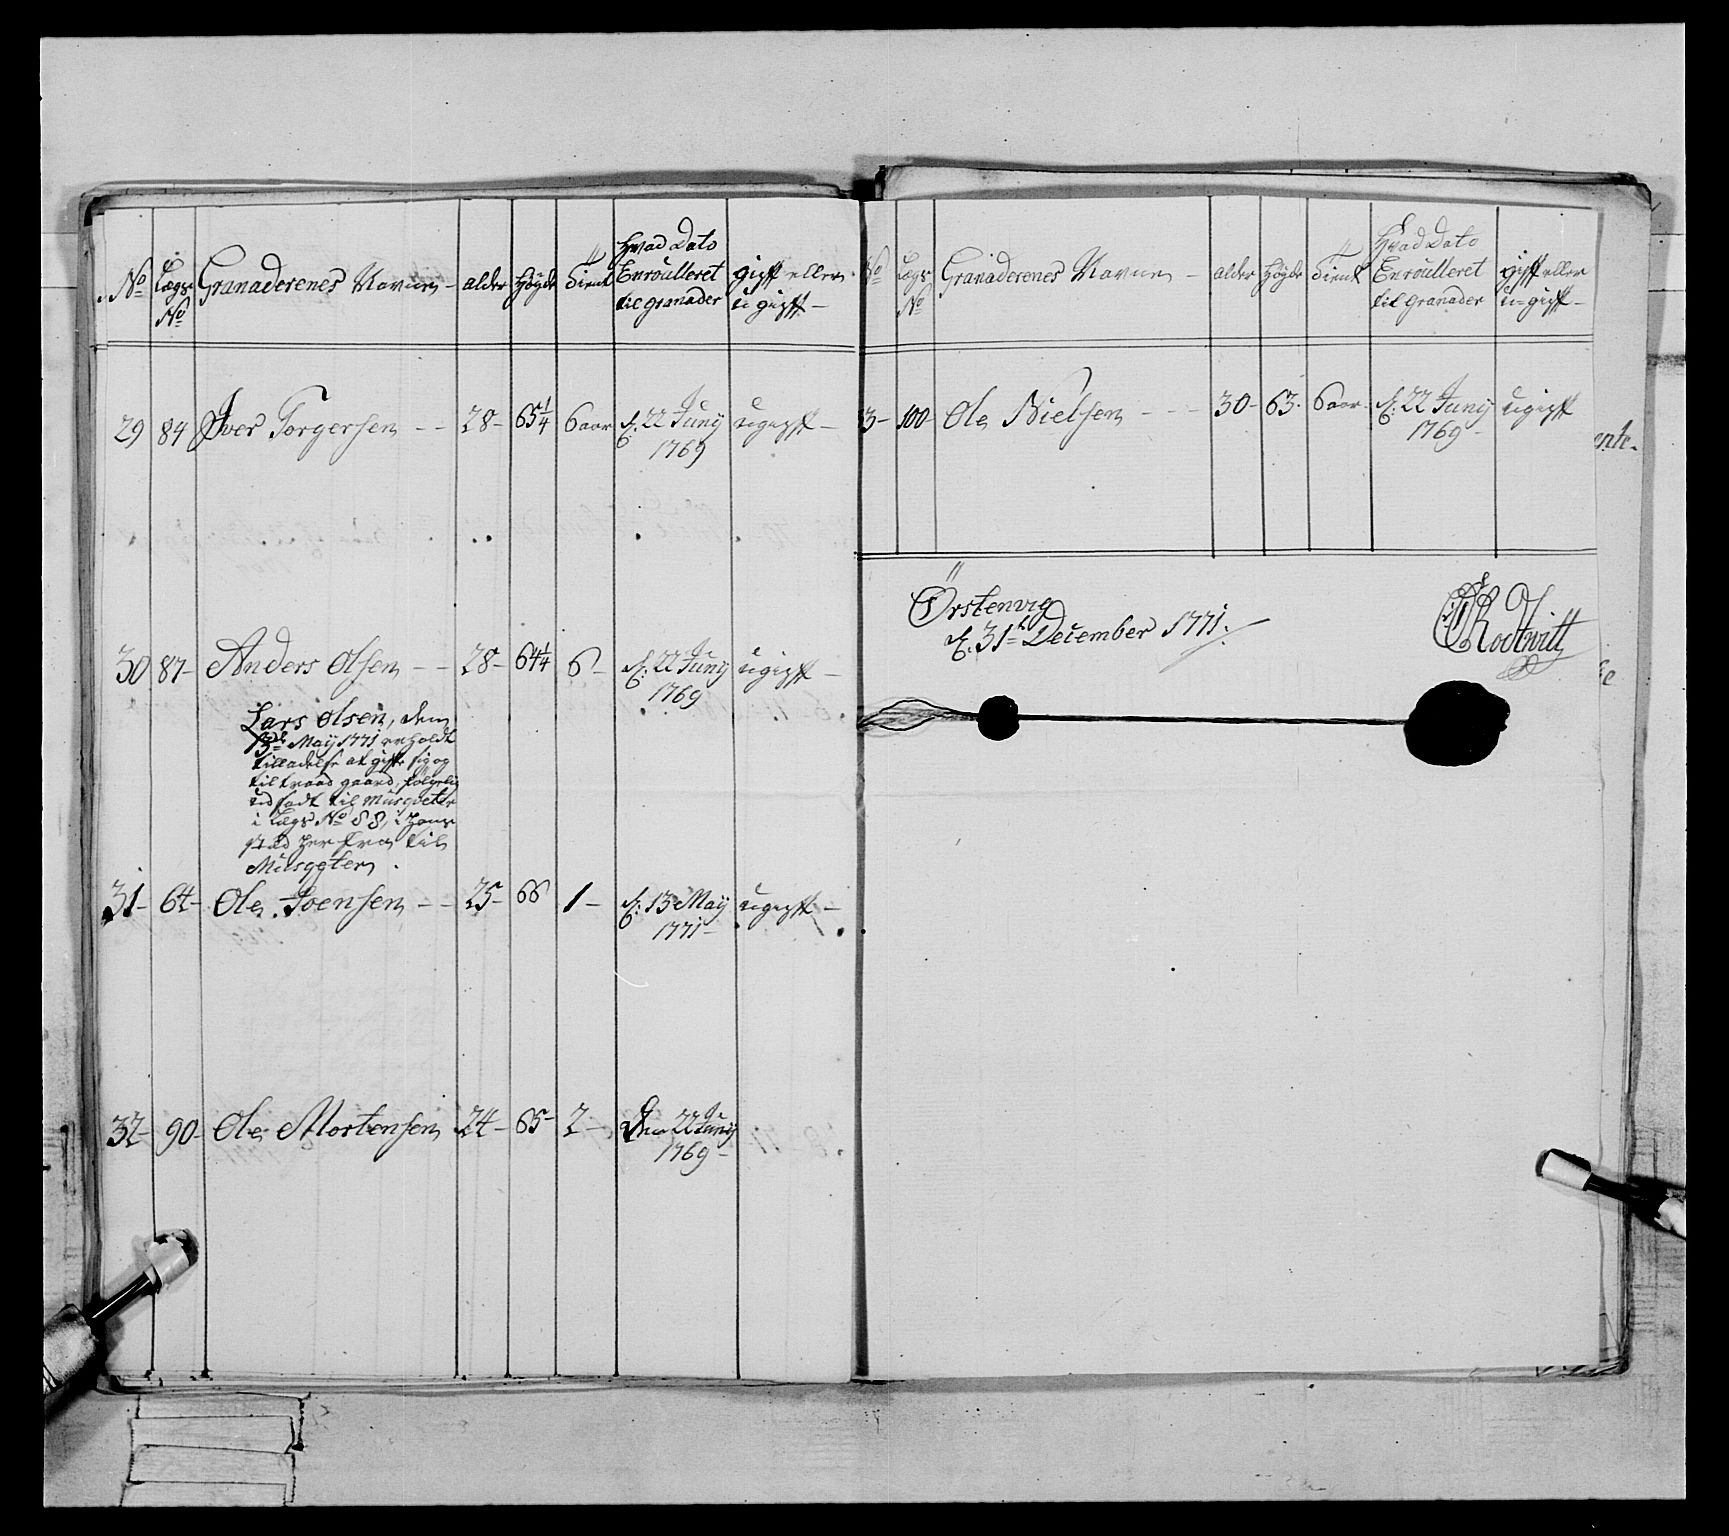 No Lægs No Granaderenes Navne - alder Høyde Tient Hvad Dato Enroulleret til granader gift eller ugift -
29 84 Iver Torgersen - - 28 - 65¼ 6 aar d: 22 Juny 1769 ugift -
30 87 - Anders Olsen - - 28 - 64¼ 6 - d: 22 Juny 1769 ugift -
Lars Olsen, dem
13de May 1771 erholdt
tilladelse at gifte sig og
tiltraad gaard, følgelig
ud sadt til Musqveter
i Lægs No 88, i hans
sted her fra til
Musqveter.
31 - 64 - Ole Joensen - - 25 - 66 1 - d: 13 May 1771 - ugift -
32 - 90 - Ole Mortensen 24 - 65 - 2 - Den 22 Juny 1769 -
No Lægs No Granaderenes Navne - alder Høyde Tient Hvad Dato Enroulleret til granader gift eller u-gift -
3 - 100 - Ole Nielsen - - - 30 - 63. 6 aar d: 22 Juny 1769 - ugift
Örstenvig
d. 31te December 1771.